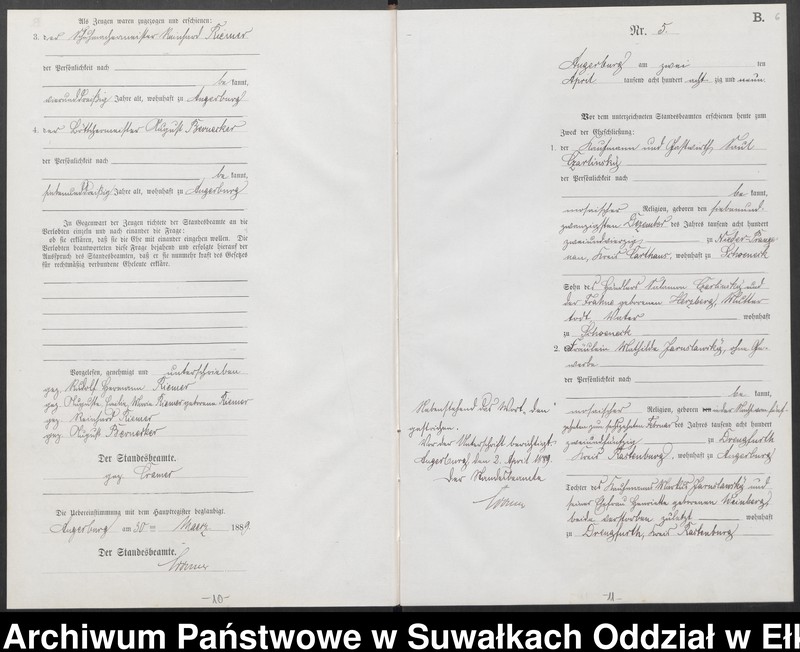 Als Zeugen waren zugezogen und erschienen:
3. der Schuhmachermeister Reinhard Riemer
der Persönlichkeit nach
be kannt,
vierunddreißig Jahre alt, wohnhaft zu Angerburg
4. der Böttchermeister August Bernecker
der Persönlichkeit nach
be kannt,
siebenunddreißig Jahre alt, wohnhaft zu Angerburg
In Gegenwart der Zeugen richtete der Standesbeamte an die
Verlobten einzeln und nach einander die Frage:
ob sie erklären, daß sie die Ehe mit einander eingehen wollen. Die
Verlobten beantworteten diese Frage bejahend und erfolgte hierauf der
Ausspruch des Standesbeamten, daß er sie nunmehr kraft des Gesetzes
für rechtmäßig verbundene Eheleute erkläre.
Vorgelesen, genehmigt und unterschrieben
gez. Rudolf Hermann Riemer
gez. Auguste Maria Riemer geborene Riemer
gez. Reinhard Riemer
gez. August Bernecker
Der Standesbeamte.
gez. Cramer
Die Uebereinstimmung mit dem Hauptregister beglaubigt.
Angerburg am 30ten Maerz 1889.
Der Standesbeamte.
Cramer
-10-
B. 6
Nr. 5.
Angerburg am zwei ten
April tausend acht hundert acht zig und neun
Vor dem unterzeichneten Standesbeamten erschienen heute zum
Zweck der Eheschließung:
1. der Kaufmann und Gastwirth, Saul
Czarlinsky
der Persönlichkeit nach
be kannt,
mosaischer Religion, geboren den siebenund-
zwanzigsten Dezember des Jahres tausend acht hundert
zweiundvierzig zu Nieder-
Kreis Carthaus, wohnhaft zu Schoeneck
Sohn des Händlers Salamon Czarlinsky und
der geborenen Herzberg, Mutter
todt, Vater wohnhaft
zu Schoeneck
2. Fräulein Mathilde Jaruslawsky, ohne Ge-
werbe
der Persönlichkeit nach
be kannt,
mosaischer Religion, geboren den in der Nacht vom fünf-
zehnten zu sechszehnten Februar des Jahres tausend acht hundert
zweiundfünfzig zu Drengfurth
Kreis Rastenburg, wohnhaft zu Angerburg
Tochter des Kaufmanns Markus Jaruslawsky und
seiner Ehefrau Henriette geborenen Weinberg,
beide verstorben zuletzt wohnhaft
zu Drengfurth, Kreis Rastenburg
Nebenstehend das Wort „den“
gestrichen.
Vor der Unterschrift berichtigt.
Angerburg, den 2. April 1889.
Der Standesbeamte
Cramer
-11-
Archiwum Państwowe w Suwałkach Oddział w Ełk